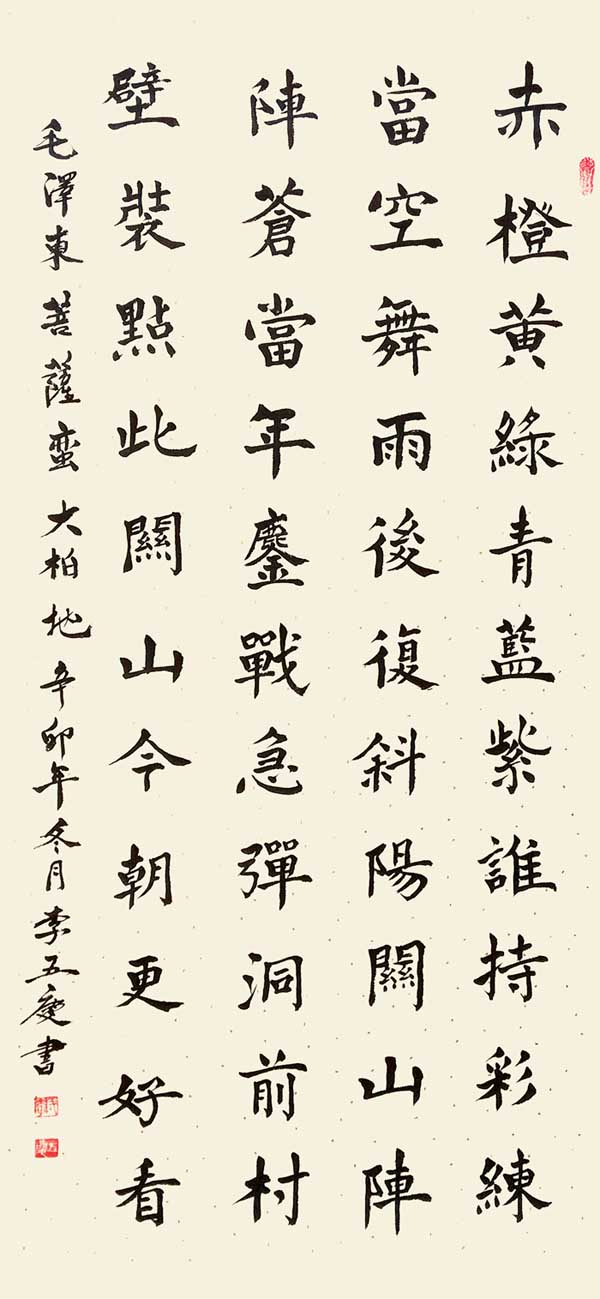 赤橙黄綠青藍紫誰持彩練
當空舞雨後復斜陽關山陣
陣蒼當年鏖戰急彈洞前村
壁裝點此關山今朝更好看
毛澤東菩薩蛮大柏地辛卯年冬月李五慶書